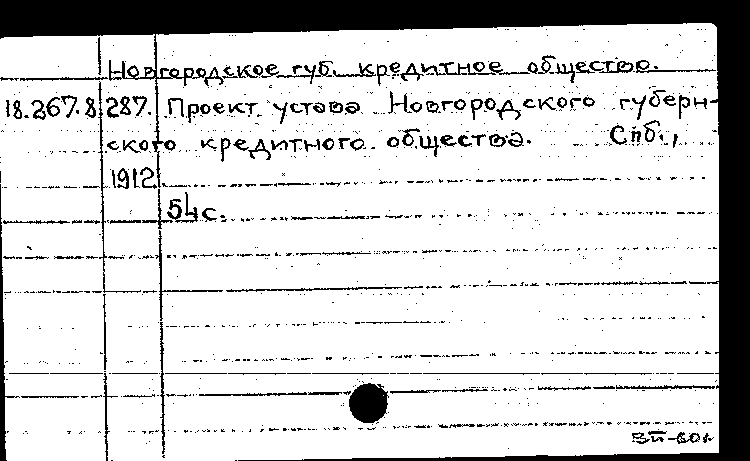 Новгородское губ. кредитное общество.
18.267.8.287. Проект устава Новгородского губерн-
ского кредитного общества. Спб.,
1912.
54 с.